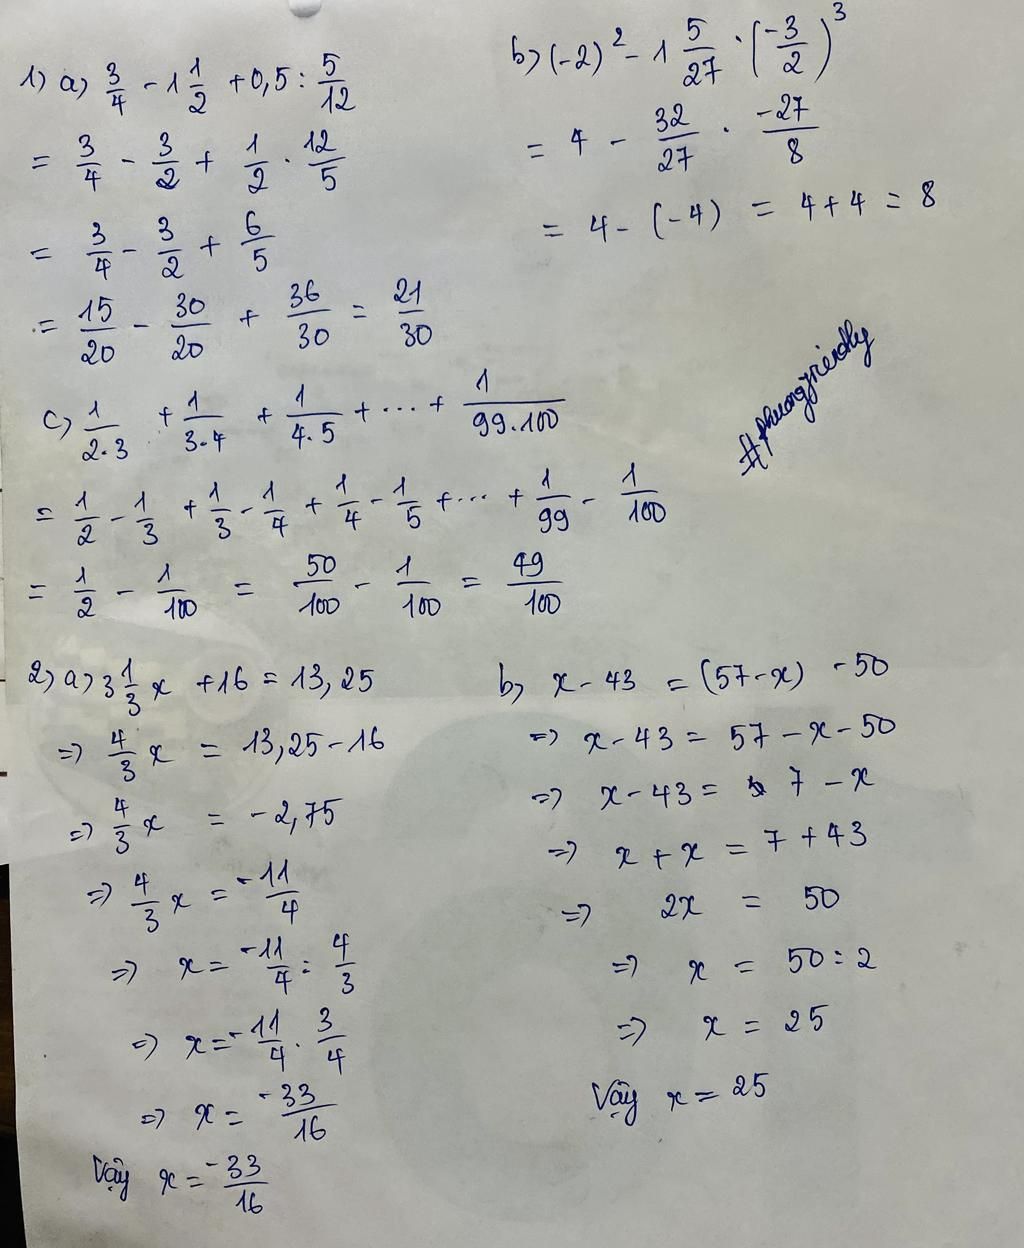 1) a) 3/4 - 1 1/2 + 0,5 : 5/12
= 3/4 - 3/2 + 1/2 . 12/5
= 3/4 - 3/2 + 6/5
= 15/20 - 30/20 + 36/30 = 21/30
b) (-2)² - 1 5/27 . (-3/2)³
= 4 - 32/27 . -27/8
= 4 - (-4) = 4 + 4 = 8
#phuongfriendly
c) 1/2.3 + 1/3.4 + 1/4.5 + ... + 1/99.100
= 1/2 - 1/3 + 1/3 - 1/4 + 1/4 - 1/5 + ... + 1/99 - 1/100
= 1/2 - 1/100 = 50/100 - 1/100 = 49/100
2) a) 3 1/3 x + 16 = 13,25
=> 4/3 x = 13,25 - 16
=> 4/3 x = -2,75
=> 4/3 x = -11/4
=> x = -11/4 : 4/3
=> x = -11/4 . 3/4
=> x = -33/16
Vậy x = -33/16
b) x - 43 = (57 - x) - 50
=> x - 43 = 57 - x - 50
=> x - 43 = 7 - x
=> x + x = 7 + 43
=> 2x = 50
=> x = 50 : 2
=> x = 25
Vậy x = 25